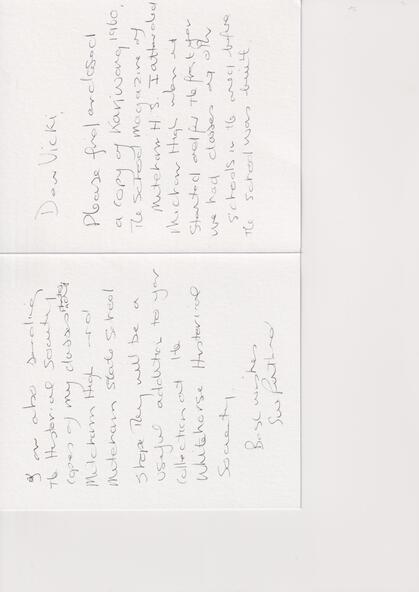 Dear Vicki,
Please find enclosed
a copy of Karrwong 1960,
the School Magazine of
Mitcham H.S. I attended
Mitcham High when it
started and for the first year
we had classes at other
schools in the area before
the school was built.
I am also sending
the Historical Society
copies of my classes photos
Mitcham High and
Mitcham State School
I hope they will be a
useful addition to your
collection at the
Whitehorse Historical
Society.
Best wishes
Sue